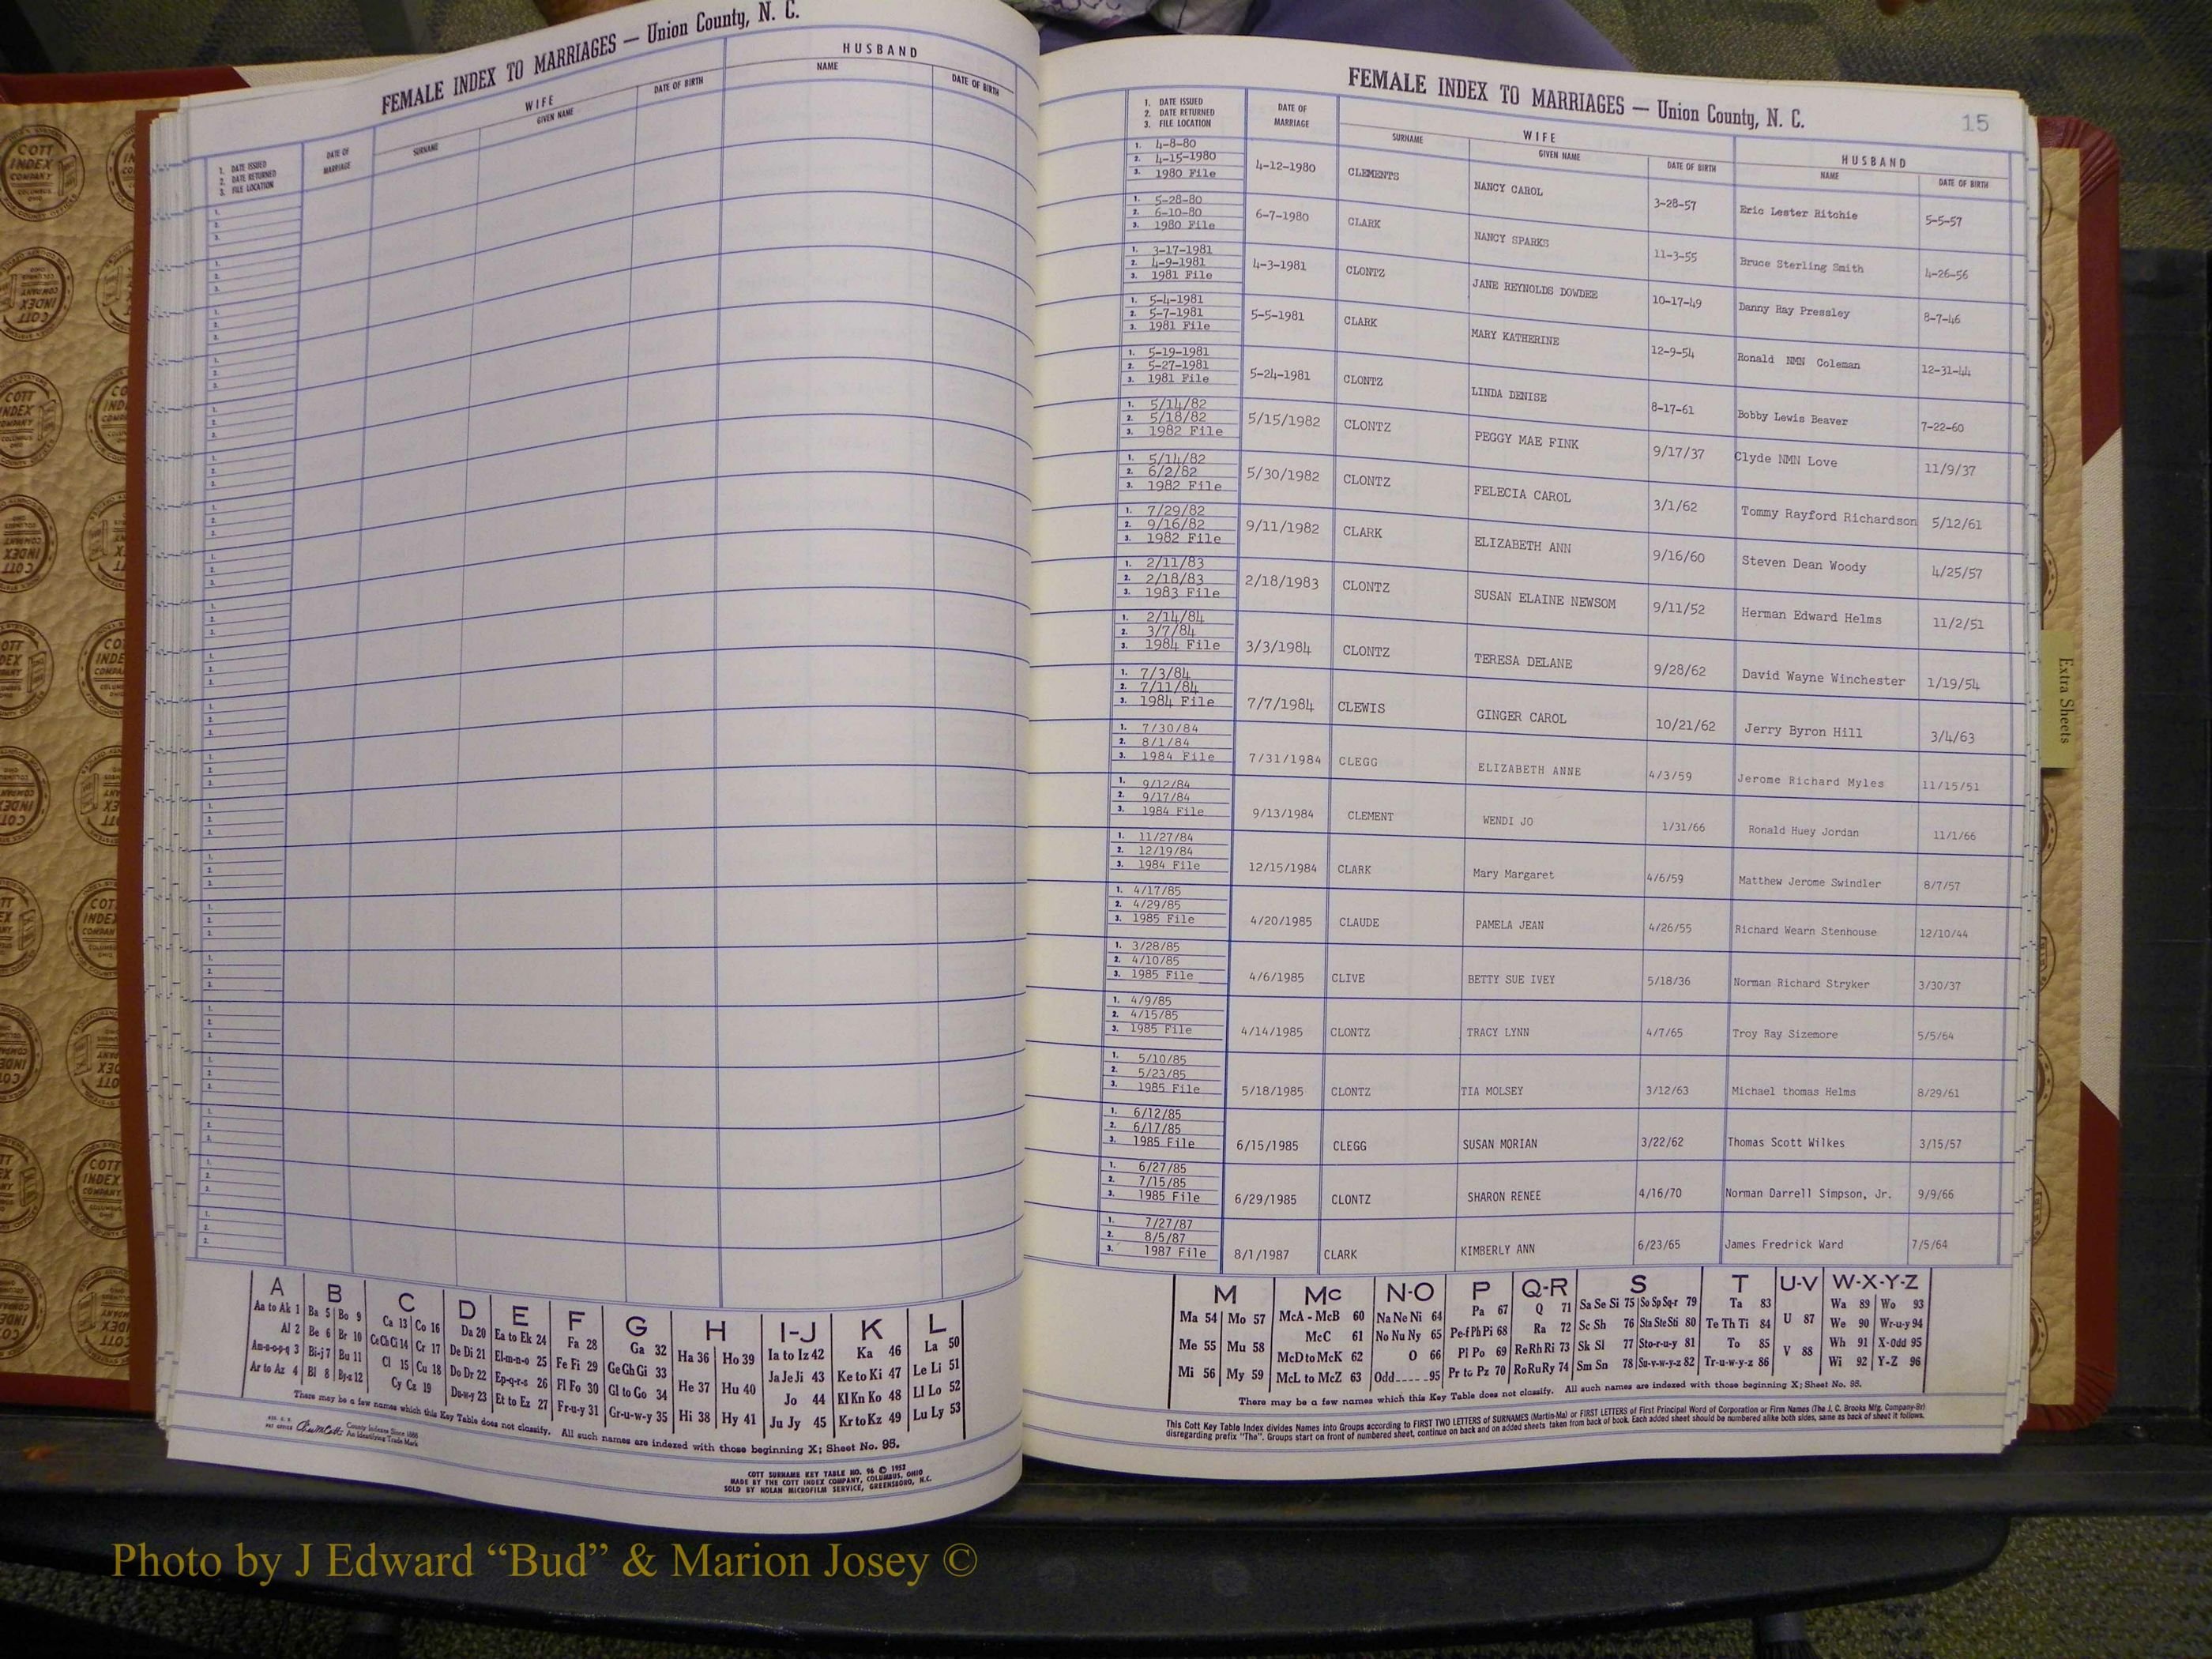 FEMALE INDEX TO MARRIAGES — Union County, N. C.
WIFE
HUSBAND
1. DATE ISSUED
2. DATE RETURNED
3. FILE LOCATION
DATE OF MARRIAGE
SURNAME
GIVEN NAME
DATE OF BIRTH
NAME
DATE OF BIRTH
A B C D E F G H I-J K L
Aa to Ak 1 Ba 5 Bo 9 Ca 13 Co 16 Da 20 Ea to Ek 24 Fa 28 Ga 32 Ha 36 Ho 39 Ia to Iz 42 Ka 46 La 50
Al 2 Be 6 Br 10 Ce Ch Ci 14 Cr 17 De Di 21 El-m-n-o 25 Fe Fi 29 Ge Gh Gi 33 He 37 Hu 40 Ja Je Ji 43 Ke to Ki 47 Le Li 51
Am-n-o-p-q 3 Bi-j 7 Bu 11 Cl 15 Cu 18 Do Dr 22 Ep-q-r-s 26 Fl Fo 30 Gl to Go 34 Hi 38 Hy 41 Jo 44 Kl Kn Ko 48 Ll Lo 52
Ar to Az 4 Bl 8 By-z 12 Cy Cz 19 Du-w-y 23 Et to Ez 27 Fr-u-y 31 Gr-u-w-y 35 Ju Jy 45 Kr to Kz 49 Lu Ly 53
There may be a few names which this Key Table does not classify. All such names are indexed with those beginning X; Sheet No. 95.
County Indexes Since 1888
An Identifying Trade Mark
COTT SURNAME KEY TABLE NO. 96 © 1952
MADE BY THE COTT INDEX COMPANY, COLUMBUS, OHIO
SOLD BY NOLAN MICROFILM SERVICE, GREENSBORO, N.C.
FEMALE INDEX TO MARRIAGES — Union County, N. C.
15
1. DATE ISSUED
2. DATE RETURNED
3. FILE LOCATION
DATE OF MARRIAGE
WIFE
SURNAME
GIVEN NAME
DATE OF BIRTH
HUSBAND
NAME
DATE OF BIRTH
1. 4-8-80
2. 4-15-1980
3. 1980 File
4-12-1980 CLEMENTS NANCY CAROL 3-28-57 Eric Lester Ritchie 5-5-57
1. 5-28-80
2. 6-10-80
3. 1980 File
6-7-1980 CLARK NANCY SPARKS 11-3-55 Bruce Sterling Smith 4-26-56
1. 3-17-1981
2. 4-9-1981
3. 1981 File
4-3-1981 CLONTZ JANE REYNOLDS DOWDEE 10-17-49 Danny Ray Pressley 8-7-46
1. 5-4-1981
2. 5-7-1981
3. 1981 File
5-5-1981 CLARK MARY KATHERINE 12-9-54 Ronald NMN Coleman 12-31-44
1. 5-19-1981
2. 5-27-1981
3. 1981 File
5-24-1981 CLONTZ LINDA DENISE 8-17-61 Bobby Lewis Beaver 7-22-60
1. 5/14/82
2. 5/18/82
3. 1982 File
5/15/1982 CLONTZ PEGGY MAE FINK 9/17/37 Clyde NMN Love 11/9/37
1. 5/14/82
2. 6/2/82
3. 1982 File
5/30/1982 CLONTZ FELECIA CAROL 3/1/62 Tommy Rayford Richardson 5/12/61
1. 7/29/82
2. 9/16/82
3. 1982 File
9/11/1982 CLARK ELIZABETH ANN 9/16/60 Steven Dean Woody 4/25/57
1. 2/11/83
2. 2/18/83
3. 1983 File
2/18/1983 CLONTZ SUSAN ELAINE NEWSOM 9/11/52 Herman Edward Helms 11/2/51
1. 2/14/84
2. 3/7/84
3. 1984 File
3/3/1984 CLONTZ TERESA DELANE 9/28/62 David Wayne Winchester 1/19/54
1. 7/3/84
2. 7/11/84
3. 1984 File
7/7/1984 CLEWIS GINGER CAROL 10/21/62 Jerry Byron Hill 3/4/63
1. 7/30/84
2. 8/1/84
3. 1984 File
7/31/1984 CLEGG ELIZABETH ANNE 4/3/59 Jerome Richard Myles 11/15/51
1. 9/12/84
2. 9/17/84
3. 1984 File
9/13/1984 CLEMENT WENDI JO 1/31/66 Ronald Huey Jordan 11/1/66
1. 11/27/84
2. 12/19/84
3. 1984 File
12/15/1984 CLARK Mary Margaret 4/6/59 Matthew Jerome Swindler 8/7/57
1. 4/17/85
2. 4/29/85
3. 1985 File
4/20/1985 CLAUDE PAMELA JEAN 4/26/55 Richard Wearn Stenhouse 12/10/44
1. 3/28/85
2. 4/10/85
3. 1985 File
4/6/1985 CLIVE BETTY SUE IVEY 5/18/36 Norman Richard Stryker 3/30/37
1. 4/9/85
2. 4/15/85
3. 1985 File
4/14/1985 CLONTZ TRACY LYNN 4/7/65 Troy Ray Sizemore 5/5/64
1. 5/10/85
2. 5/23/85
3. 1985 File
5/18/1985 CLONTZ TIA MOLSEY 3/12/63 Michael thomas Helms 8/29/61
1. 6/12/85
2. 6/17/85
3. 1985 File
6/15/1985 CLEGG SUSAN MORIAN 3/22/62 Thomas Scott Wilkes 3/15/57
1. 6/27/85
2. 7/15/85
3. 1985 File
6/29/1985 CLONTZ SHARON RENEE 4/16/70 Norman Darrell Simpson, Jr. 9/9/66
1. 7/27/87
2. 8/5/87
3. 1987 File
8/1/1987 CLARK KIMBERLY ANN 6/23/65 James Fredrick Ward 7/5/64
M Mc N-O P Q-R S T U-V W-X-Y-Z
Ma 54 Mo 57 McA - McB 60 Na Ne Ni 64 Pa 67 Q 71 Sa Se Si 75 So Sp Sq-r 79 Ta 83 U 87 Wa 89 Wo 93
Me 55 Mu 58 McC 61 No Nu Ny 65 Pe-f Ph Pi 68 Ra 72 Sc Sh 76 Sta Ste Sti 80 Te Th Ti 84 V 88 We 90 Wr-u-y 94
Mi 56 My 59 McD to McK 62 O 66 Pl Po 69 Re Rh Ri 73 Sk Sl 77 Sto-r-u-y 81 To 85 Wh 91 X-Odd 95
McL to McZ 63 Odd 95 Pr to Pz 70 Ro Ru Ry 74 Sm Sn 78 Su-v-w-y-z 82 Tr-u-w-y-z 86 Wi 92 Y-Z 96
There may be a few names which this Key Table does not classify. All such names are indexed with those beginning X; Sheet No. 95.
This Cott Key Table Index divides Names into Groups according to FIRST TWO LETTERS of SURNAMES (Martin-Ma) or FIRST LETTERS of First Principal Word of Corporation or Firm Names (The J. C. Brooks Mfg. Company-Br)
disregarding prefix "The". Groups start on front of numbered sheet, continue on back and on added sheets taken from back of book. Each added sheet should be numbered alike both sides, same as back of sheet it follows.
Extra Sheets
COTT INDEX COMPANY
Photo by J Edward “Bud” & Marion Josey ©